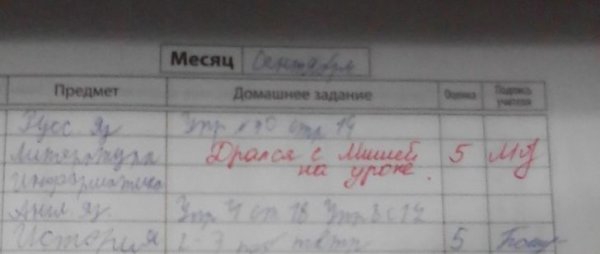 Месяц Сентябрь
Предмет Домашнее задание Оценка Подпись учителя
Русс. яз Упр н 30 стр 19
Литература Дрался с Мишей 5
на уроке.
Информатика
Англ яз Упр 7 ст 18 Упр 8 с 12
История 5